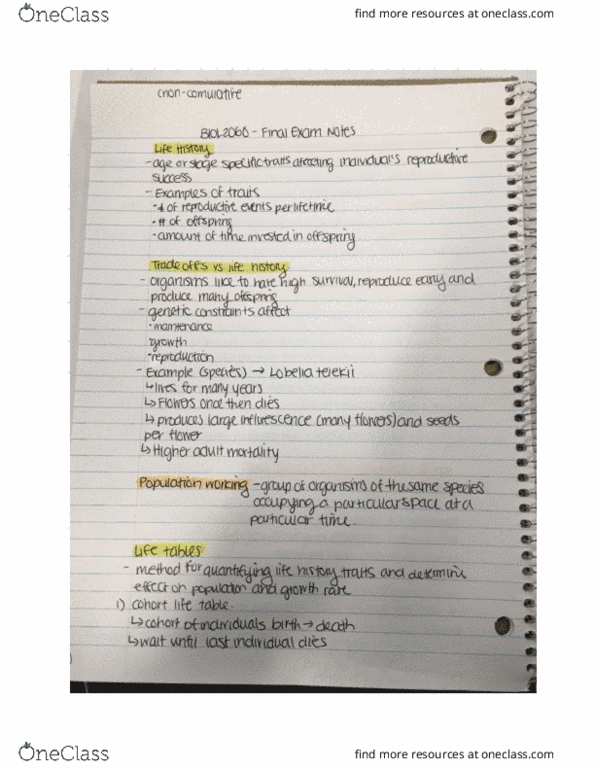 OneClass
find more resources at oneclass.com
(non-comulative
BIOL2060 - Final Exam Notes
Life History
- age or stage specific traits affecting individual's reproductive
success
- Examples of traits
• # of reproductive events per lifetime
• # of offspring
• amount of time invested in offspring
Trade offs vs life history
- organisms like to have high survival, reproduce early and
produce many offspring
- genetic constraints affect
• maintenance
growth
• reproduction
- Example (species) → Lobelia telekii
↳ lives for many years
↳ Flowers once then dies
↳ produces large influrescence (many flowers) and seeds
per flower
↳ Higher adult mortality
Population working - group of organisms of the same species
occupying a particular space at a
particular time.
Life tables
- method for quantifying life history traits and determine
effect on population and growth rate
1) cohort life table.
↳ cohort of individuals birth → death
↳ wait until last individual dies
OneClass
find more resources at oneclass.com